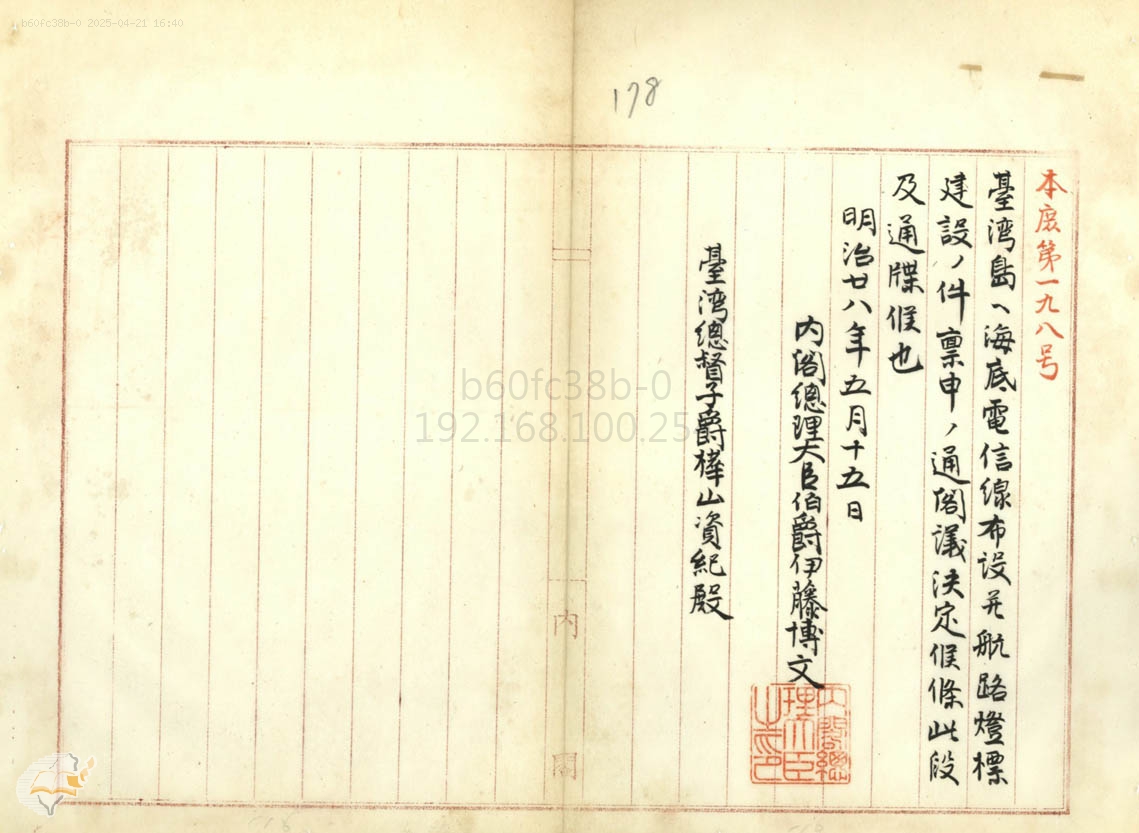 b60fc38b-0 2025-04-21 16:40
178
本庶第一九八号
臺湾島ヘ海底電信線布設并航路燈標
建設ノ件稟申ノ通閣議決定候條此段
及通牒候也
明治廿八年五月十五日
内閣總理大臣伯爵伊藤博文
内閣總
理大臣
之印
臺湾總督子爵樺山資紀殿
内閣
b60fc38b-0
192.168.100.25